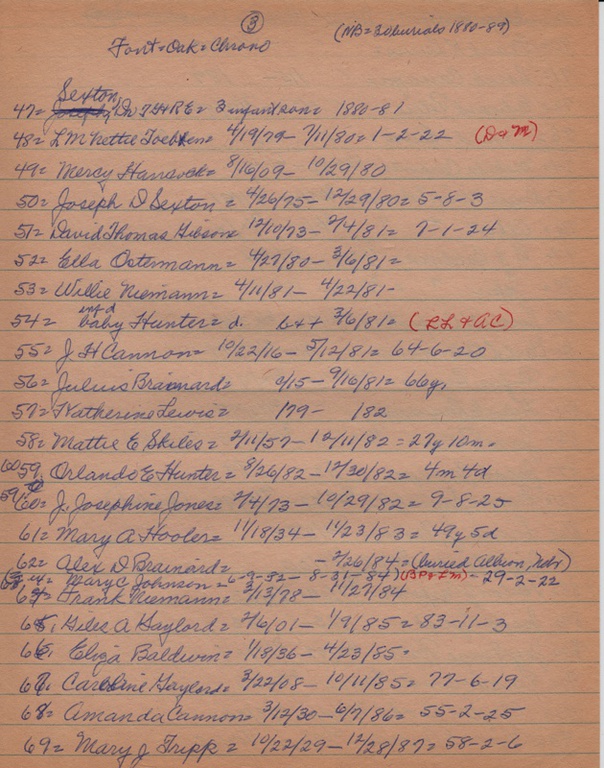 ③
(NB = 20 burials 1880-89)
Font = Oak = Chrono
Sexton
47 = Dr T G & R E = 3 infant sons = 1880-81
48 = L M Nettie = 4/19/79 - 7/11/80 = 1-2-22 (D & M)
49 = Mercy Hancock = 8/16/09 - 10/29/80
50 = Joseph D Sexton = 4/26/75 - 12/29/80 = 5-8-3
51 = David Thomas Gibson = 12/10/73 - 2/4/81 = 7-1-24
52 = Ella Ostermann = 4/27/80 - 3/6/81 =
53 = Willie Niemann = 4/11/81 - 4/22/81 -
inf d
54 = baby Hunter = d. b & d 3/6/81 = (LL & AC)
55 = J H Cannon = 10/22/16 - 5/12/81 = 64-6-20
56 = Julius Brainard = /15 - 9/16/81 = 66y,
57 = Katherine Lewis = /79 - /82
58 = Mattie E Skiles = 2/11/57 - 12/11/82 = 27y 10m =
60 59. Orlando E Hunter = 8/26/82 - 12/30/82 = 4m 4d
59. 60 = J. Josephine Jones = 2/4/73 - 10/29/82 = 9-8-25
61 = Mary A Hooler = 11/18/34 - 11/23/83 = 49y 5d
62 = Alex D Brainard = - 2/26/84 = (buried Albion, Nebr)
63, Mary C Johnson = 6-9-32 - 8-31-84) - 29-2-22
64 = Frank Niemann = 2/13/78 - 11/27/84
65, Giles A Gaylord = 2/6/01 - 1/9/85 = 83-11-3
66, Eliza Baldwin = 1/18/36 - 4/23/85 =
67, Caroline Gaylord = 3/22/08 - 10/11/85 = 77-6-19
68 = Amanda Cannon = 3/12/30 - 6/7/86 = 55-2-25
69 = Mary J Tripp = 10/22/29 - 12/28/87 = 58-2-6